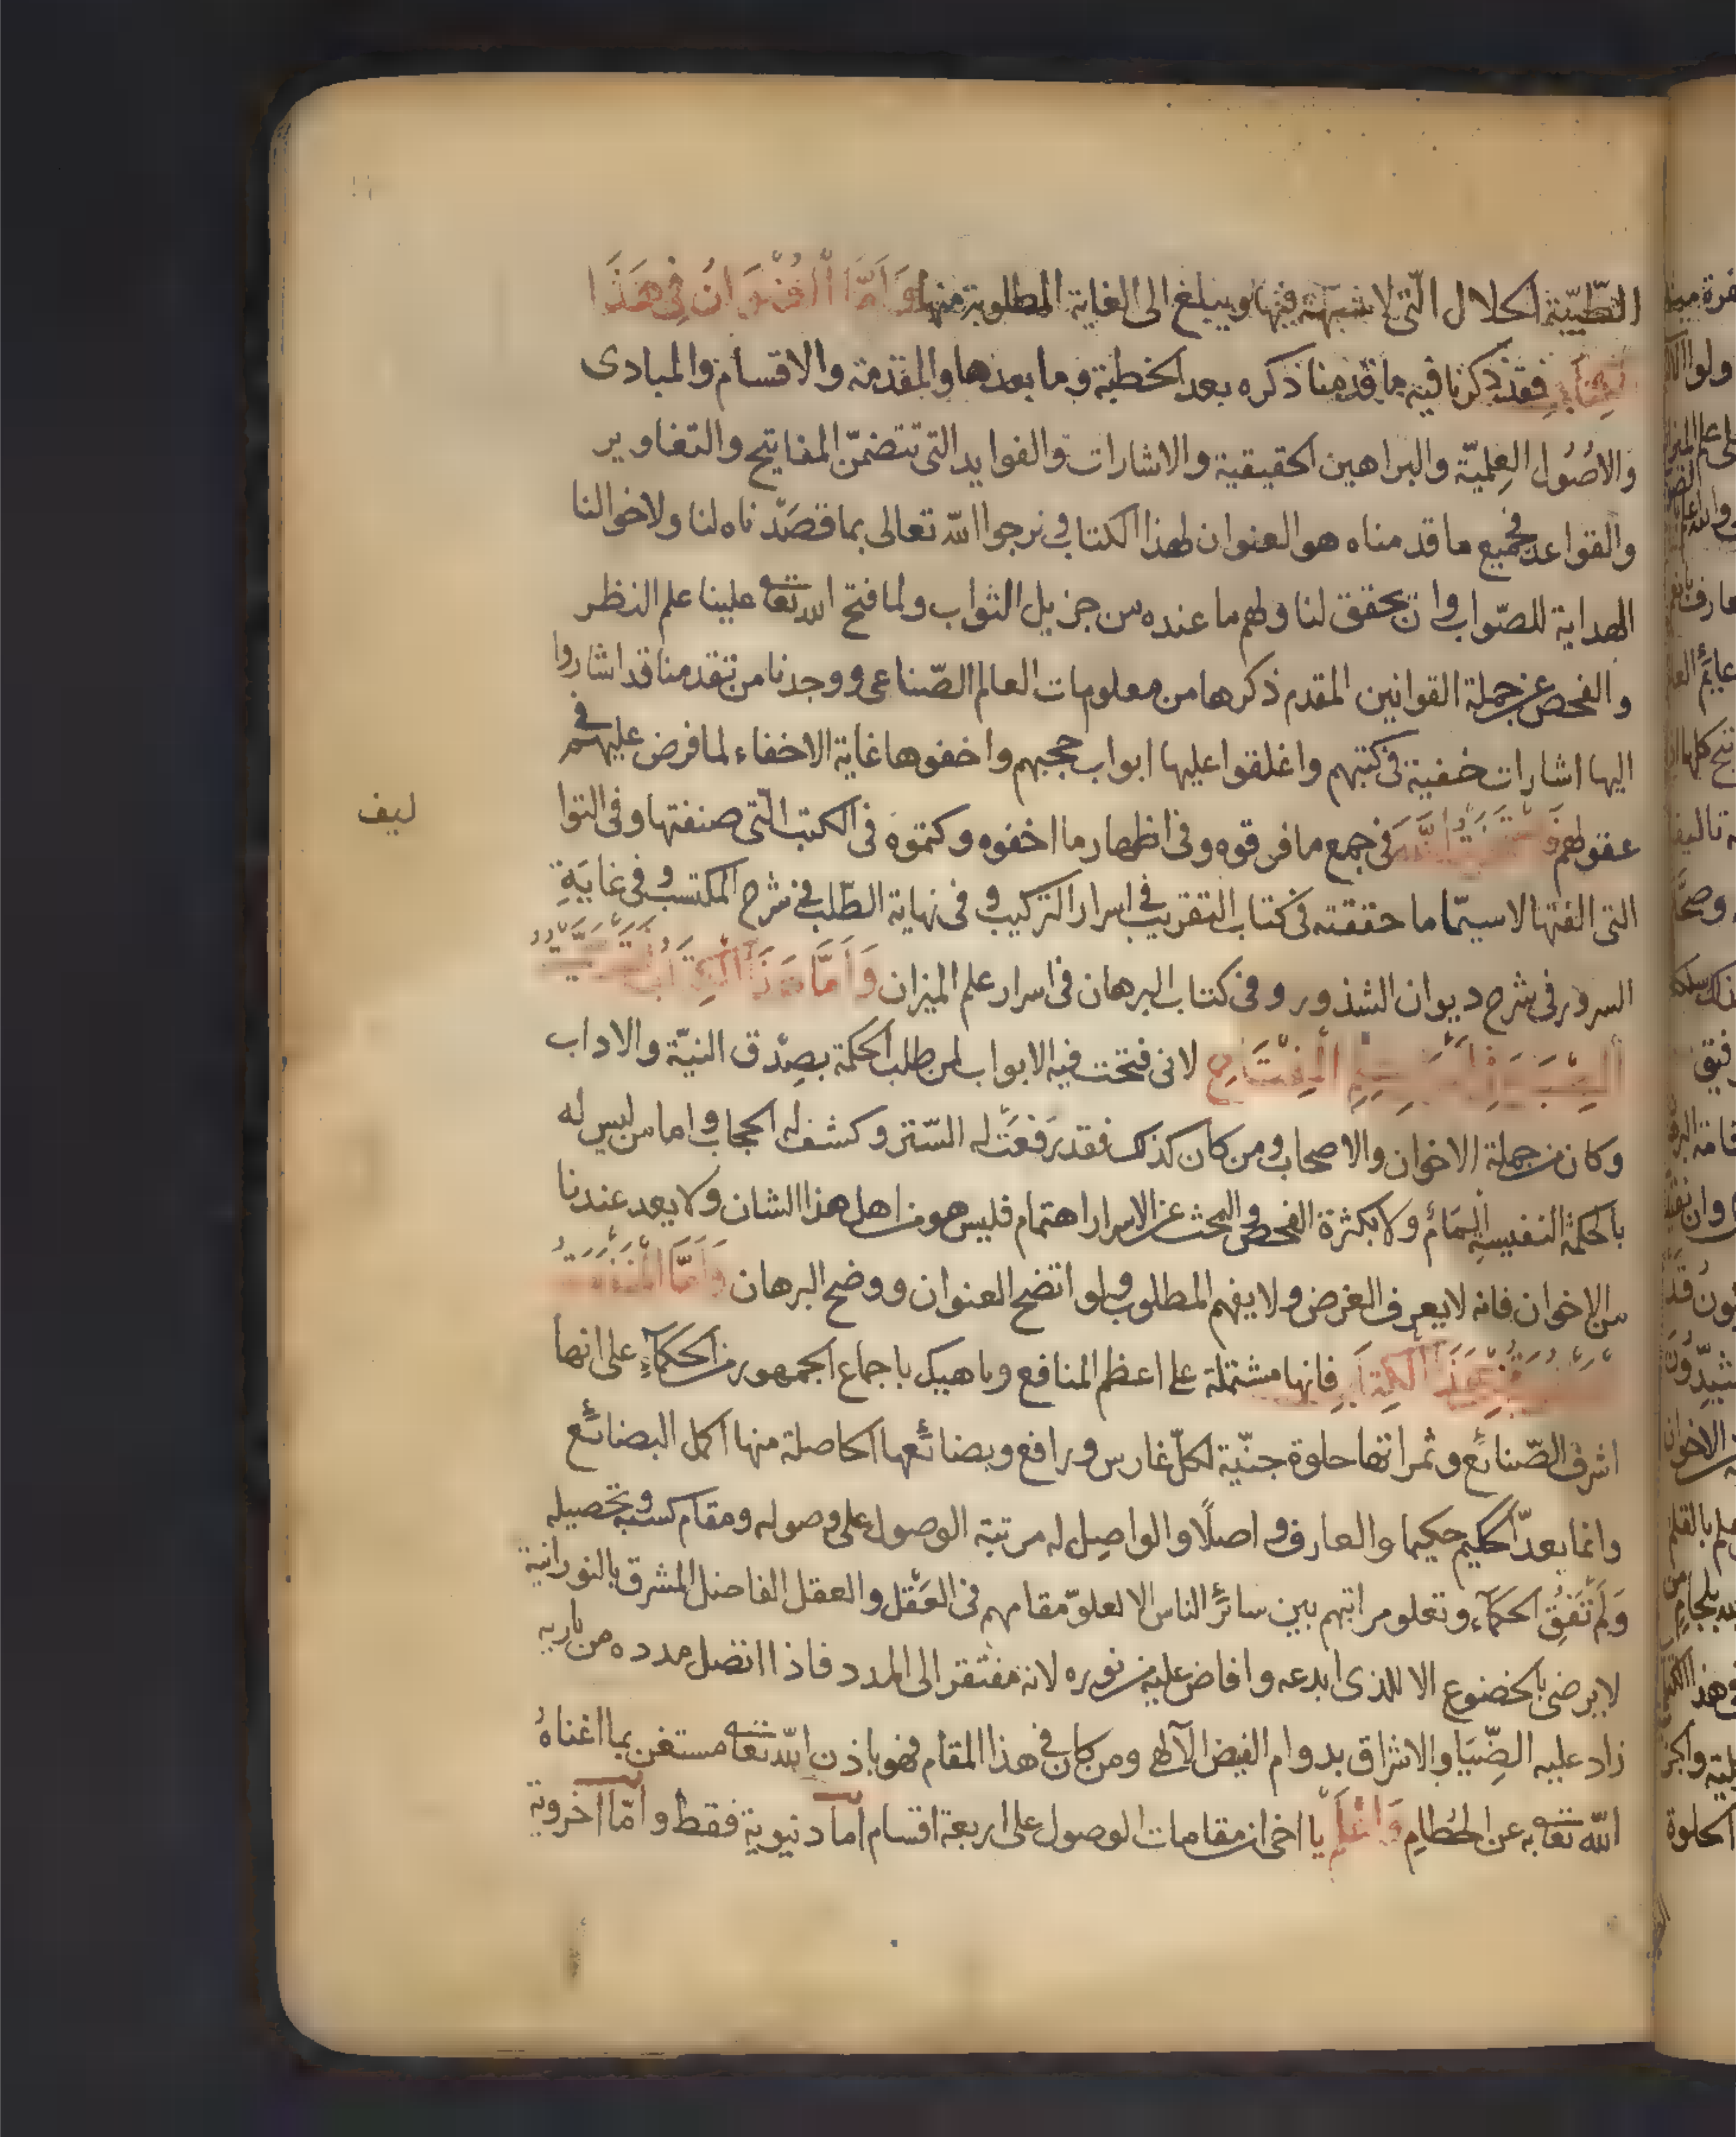 الطّيّبة الحلال الّتى لا شبهة فيها ويبلغ الى الغاية المطلوبة منها وَاَمَّا الْعُنْوَانُ فِى هَذَا
فقد ذكرنا فيه ما قدمنا ذكره بعد الخطبة وما بعدها والمقدمة والاقسام والمبادى
والاصُوُل العِلميّة والبراهين الحقيقية والاشارات والفوايد التى تتضمّن المفاتيح والتفاوير
والقواعد فجميع ما قدمناه هو العنوان لهذا الكتاب ونرجوا الله تعالى بما قصَدْناه لنا ولاخواننا
الهداية للصّواب وان يحقق لنا ولهم ما عنده من جزيل الثواب ولما فتح الله تعا علينا علم النظر
والفحص عن جملة القوانين المقدم ذكرها من معلومات العالم الصّناعى ووجدنا من تقدمنا قد اشاروا
اليها اشارات خفية فى كتبهم واغلقوا عليها ابواب حجبهم واخفوها غاية الاخفاء لما فرض عليهم فى
عقولهم فى جمع ما فرقوه وفى اظهار ما اخفوه وكتموه فى الكتب الّتى صنفتها وفى التوا
ليف
التى الفتها لاسيّما ما حققته فى كتاب التقريب فى اسرار التركيب وفى نهاية الطّلب فى شرح المكتسب وفى غايَةِ
السرور فى شرح ديوان الشذور وفى كتاب البرهان فى اسرار علم الميزان وَاَمَّا هَذَا الْكِتَابُ
لانى فتحت فيه الابواب لمن طلب الحكمة بصِدْق النيّة والاداب
وكان من جملة الاخوان والاصحاب ومن كان كذلك فقد رَفعَتْ له السّتر وكشف له الحجاب واما من ليس له
بالحكمة النفيسة ولا بكثرة الفحص والبحث عن الاسرار اهتمام فليس هو من اهل هذا الشان ولا يعد عندنا
من الاخوان فانه لا يعرف الغرض ولا يفهم المطلوب ولو اتضح العنوان ووضح البرهان وَاَمَّا
هَذَا الْكِتَابِ فانها مشتملة على اعظم المنافع وناهيك باجماع الجمهور من الحكماء على انها
اشرف الصّنائع وثمراتها حلوة جنيّة لكلّ غارس ورافع وبضائعها الحاصلة منها اكمل البضائع
وانما يعدّ الحكيم حكيما والعارف واصلًا والواصِل له مرتبة الوصول على وصوله ومقام كسبه وتحصيله
وَلَمْ تَفُقِ الحكماء وتعلو مراتبهم بين سائر الناس الا لعلوّ مقامهم فى العَقْل والعقل الفاضل المشرق بالنورانية
لا يرضى بالخضوع الا للذى ابدعه وافاض عليه من نوره لانه مفتقر الى المدد فاذا اتصل مدده من باريه
زاد عليه الضِّيَا والاشراق بدوام الفيض الآلهى ومن كان فى هذا المقام فهو باذن الله تعا مستغن بما اغناهُ
الله تعا به عن الحُطَامِ وَاعْلَمْ يا اخى ان مقامات الوصول على اربعة اقسام اما دنيوية فقط واما اخروية